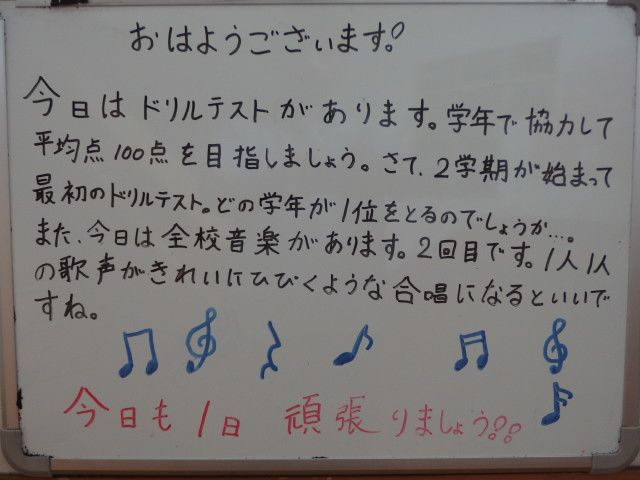 おはようございます。
今日はドリルテストがあります。学年で協力して
平均点100点を目指しましょう。さて、2学期が始まって
最初のドリルテスト。どの学年が1位をとるのでしょうか…。
また、今日は全校音楽があります。2回目です。1人1人
の歌声がきれいにひびくような合唱になるといいで
すね。
今日も1日 頑張りましょう!!